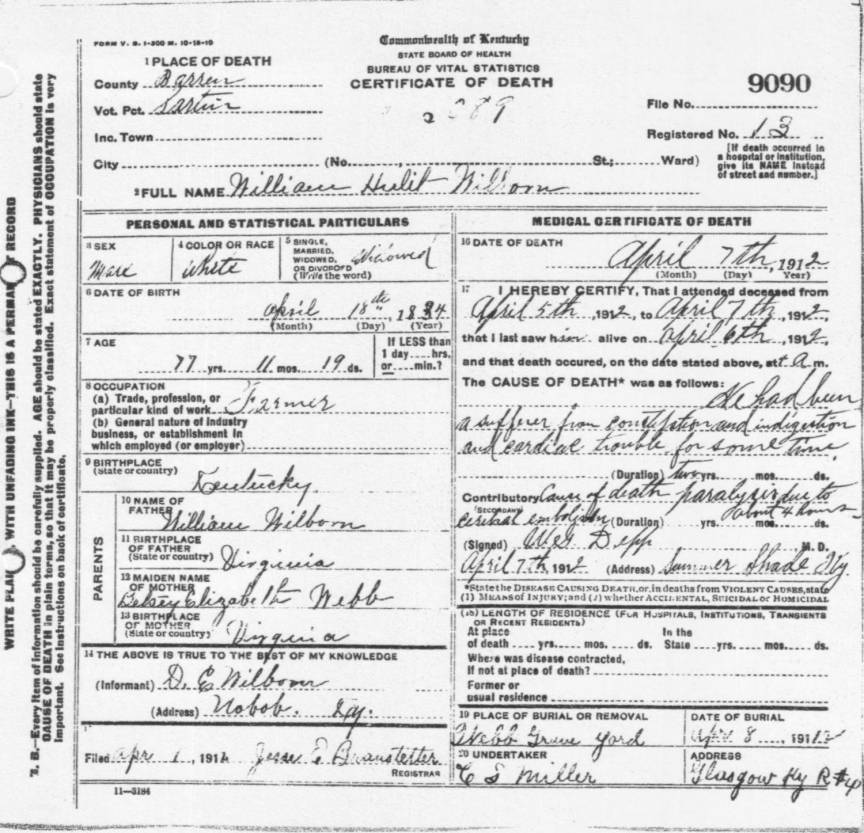 FORM V. S. 1-300 M. 10-18-10
Commonwealth of Kentucky
STATE BOARD OF HEALTH
BUREAU OF VITAL STATISTICS
CERTIFICATE OF DEATH
1 PLACE OF DEATH
County Barren
Vot. Pct.
Inc. Town
City (No. , St.; Ward)
9090
File No.
Registered No. 13
[If death occurred in
a hospital or institution,
give its NAME instead
of street and number.]
2 FULL NAME William Hulit Wilborn
PERSONAL AND STATISTICAL PARTICULARS
3 SEX
Male
4 COLOR OR RACE
White
5 SINGLE,
MARRIED,
WIDOWED,
OR DIVORCED
(Write the word)
Widowed
6 DATE OF BIRTH
April 18th, 1834
(Month) (Day) (Year)
7 AGE
77 yrs. 11 mos. 19 ds.
If LESS than
1 day....hrs.
or....min.?
8 OCCUPATION
(a) Trade, profession, or
particular kind of work Farmer
(b) General nature of industry
business, or establishment in
which employed (or employer)
9 BIRTHPLACE
(State or country)
Kentucky
PARENTS
10 NAME OF
FATHER
William Wilborn
11 BIRTHPLACE
OF FATHER
(State or country) Virginia
12 MAIDEN NAME
OF MOTHER
Betsey Elizabeth Webb
13 BIRTHPLACE
OF MOTHER
(State or country) Virginia
14 THE ABOVE IS TRUE TO THE BEST OF MY KNOWLEDGE
(Informant) D. E Wilborn
(Address) Nobob. Ky.
Filed Apr 1, 1912 Jesse E Branstetter
REGISTRAR
11—3184
MEDICAL CERTIFICATE OF DEATH
16 DATE OF DEATH
April 7th, 1912
(Month) (Day) (Year)
17 I HEREBY CERTIFY, That I attended deceased from
April 5th, 1912, to April 7th, 1912,
that I last saw him alive on April 6th, 1912,
and that death occured, on the date stated above, at a m.
The CAUSE OF DEATH* was as follows:
He had been
a sufferer from constiption and indigestion
and cardiac trouble for some time.
(Duration) two yrs. mos. ds.
Contributory Cause of death paralysis due to
(SECONDARY)
cerebral embolism (Duration) yrs. mos. ds. about 4 hours
(Signed) Depp M. D.
April 7th, 1912 (Address) Summer Shade Ky.
*State the DISEASE CAUSING DEATH, or, in deaths from VIOLENT CAUSES, state
(1) MEANS of INJURY; and (2) whether ACCIDENTAL, SUICIDAL or HOMICIDAL
(18) LENGTH OF RESIDENCE (FOR HOSPITALS, INSTITUTIONS, TRANSIENTS
OR RECENT RESIDENTS)
At place
of death .... yrs. .... mos. .... ds.
In the
State .... yrs. .... mos. .... ds.
Where was disease contracted,
If not at place of death?
Former or
usual residence
19 PLACE OF BURIAL OR REMOVAL
Webb Grave Yard
DATE OF BURIAL
Apr 8, 1912
20 UNDERTAKER
C S Miller
ADDRESS
Glasgow Ky R#4
WRITE PLAINLY, WITH UNFADING INK—THIS IS A PERMANENT RECORD
N. B.—Every item of information should be carefully supplied. AGE should be stated EXACTLY. PHYSICIANS should state
CAUSE OF DEATH in plain terms, so that it may be properly classified. Exact statement of OCCUPATION is very
important. See instructions on back of certificate.